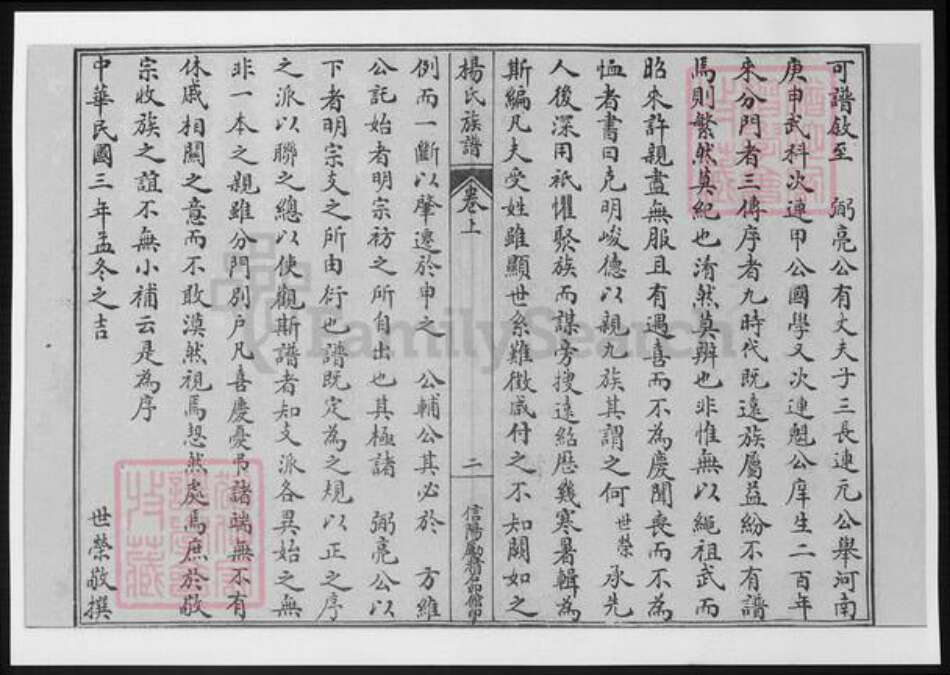 可譜敘至　弼亮公有丈夫子三長連元公舉河南
庚申武科次連甲公國學又次連魁公庠生二百年
來分門者三傳序者九時代既遠族屬益紛不有譜
焉則繁然莫紀也淆然莫辨也非惟無以繩祖武而
昭來許親盡無服且有遇喜而不為慶聞喪而不為
恤者書曰克明峻德以親九族其謂之何世榮承先
人後深用祇懼聚族而謀旁搜遠紹歷幾寒暑輯為
斯編凡夫受姓雖顯世系難徵咸付之不知闕如之
楊氏族譜
卷上
二
信陽
例而一斷以肇遷於申之　公輔公其必於　方維
公託始者明宗祊之所自出也其極諸　弼亮公以
下者明宗支之所由衍也譜既定為之規以正之序
之派以聯之總以使觀斯譜者知支派各異始之無
非一本之親雖分門別戶凡喜慶憂弔諸端無不有
休戚相關之意而不敢漠然視焉恝然處焉庶於敬
宗收族之誼不無小補云是為序
中華民國三年孟冬之吉　世榮敬撰
FamilySearch